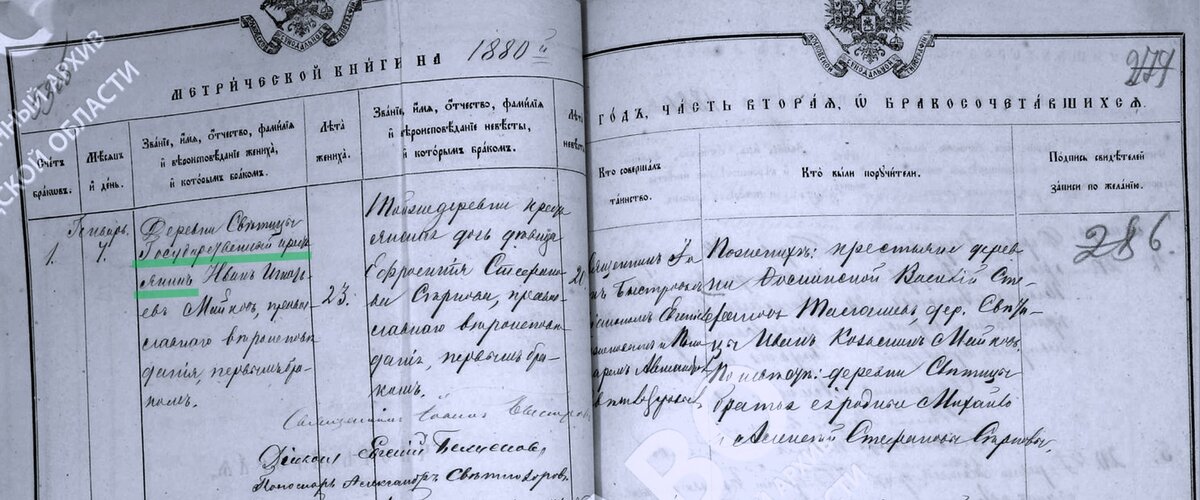 МЕТРИЧЕСКОЙ КНИГИ НА 1880й
ГОДЪ, ЧАСТЬ ВТОРАЯ, Ѿ БРАКОСОЧЕТАВШИХСЯ.
279
Счетъ браковъ.
Мѣсяцъ и день.
Званіе, имя, отчество, фамилія
и вѣроисповѣданіе жениха,
и которымъ бракомъ.
Лѣта
жениха.
Званіе, имя, отчество, фамилія
и вѣроисповѣданіе невѣсты,
и которымъ бракомъ.
Лѣта
невѣсты
Кто совершалъ
таинство.
Кто были поручители.
Подпись свидѣтелей
записи по желанію.
1.
Январь
7.
Деревни Святицы
Государственный крест
янинъ Иванъ
Майковъ, право
славнаго вѣроисповѣ
данія, первымъ бра
комъ.
23.
Тойже деревни крест
янская дочь дѣвица
Евфросинія Стефано
ва, право
славнаго вѣроиспові
данія, первымъ бра
комъ.
Священникъ
Быстровъ
По женихѣ: крестьяне дерев
ни Василій Сте
фановъ дер. Святи
цы Иванъ Козьминъ Майковъ.
По невѣстѣ: деревни Святицы
братья ея родные Михаилъ
и Алексѣй Стефановы
286.
Священникъ Іоаннъ Быстровъ
Діаконъ Евгеній
Пономарь Александръ Свѣтлосоровъ
АРХИВ
ОБЛАСТИ